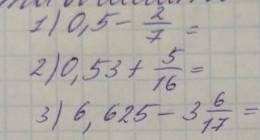 1) 0,5 - 2/7 =
2) 0,53 + 5/16 =
3) 6,625 - 3 6/17 =